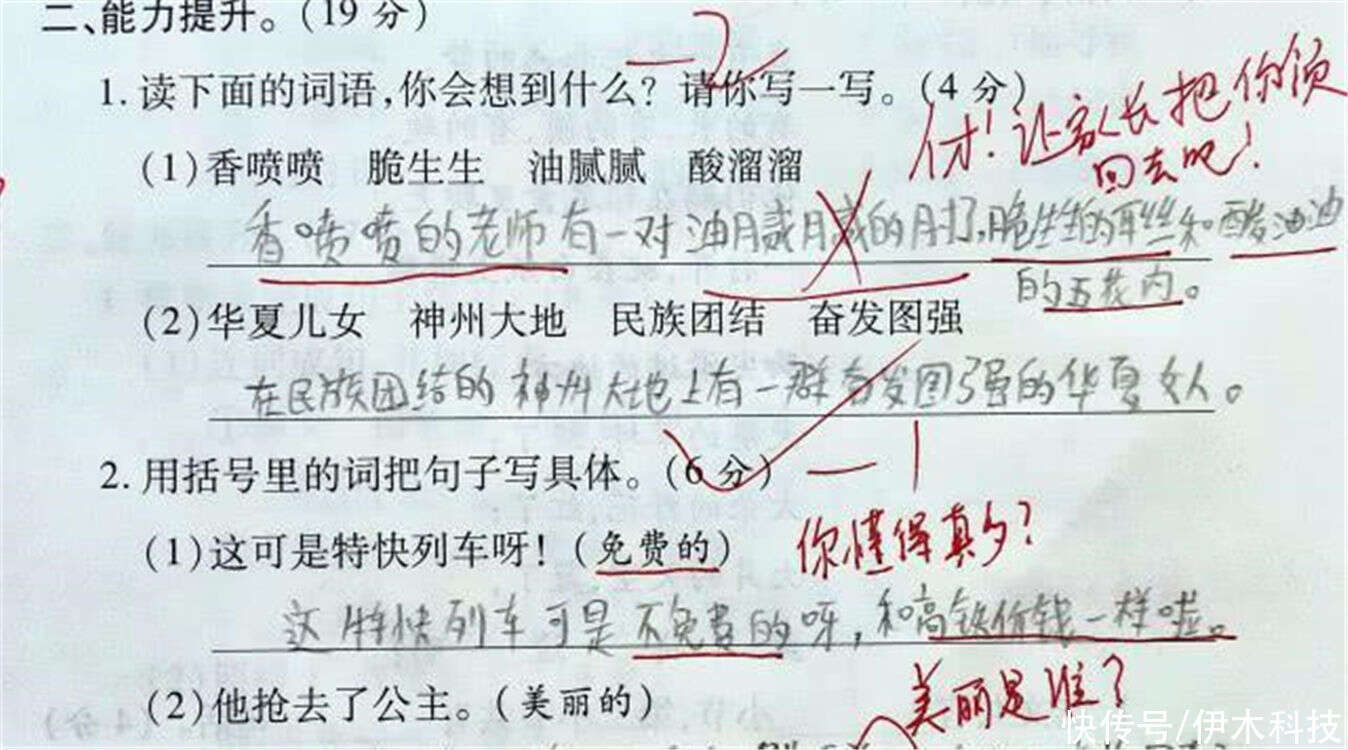 二、能力提升。(19分)
-2
1. 读下面的词语,你会想到什么? 请你写一写。(4分)
人才!让家长把你领
回去吧!
(1)香喷喷 脆生生 油腻腻 酸溜溜
香喷喷的老师有一对油腻腻的肘子,脆生生的耳丝和酸油油
的五花肉。
(2)华夏儿女 神州大地 民族团结 奋发图强
在民族团结的神州大地上有一群奋发图强的华夏女人。
2. 用括号里的词把句子写具体。(6分)
-1
(1)这可是特快列车呀!(免费的)
你懂得真多?
这特快列车可是不免费的呀,和高铁价钱一样啦。
(2)他抢去了公主。(美丽的)
美丽是谁?
快传号/伊木科技